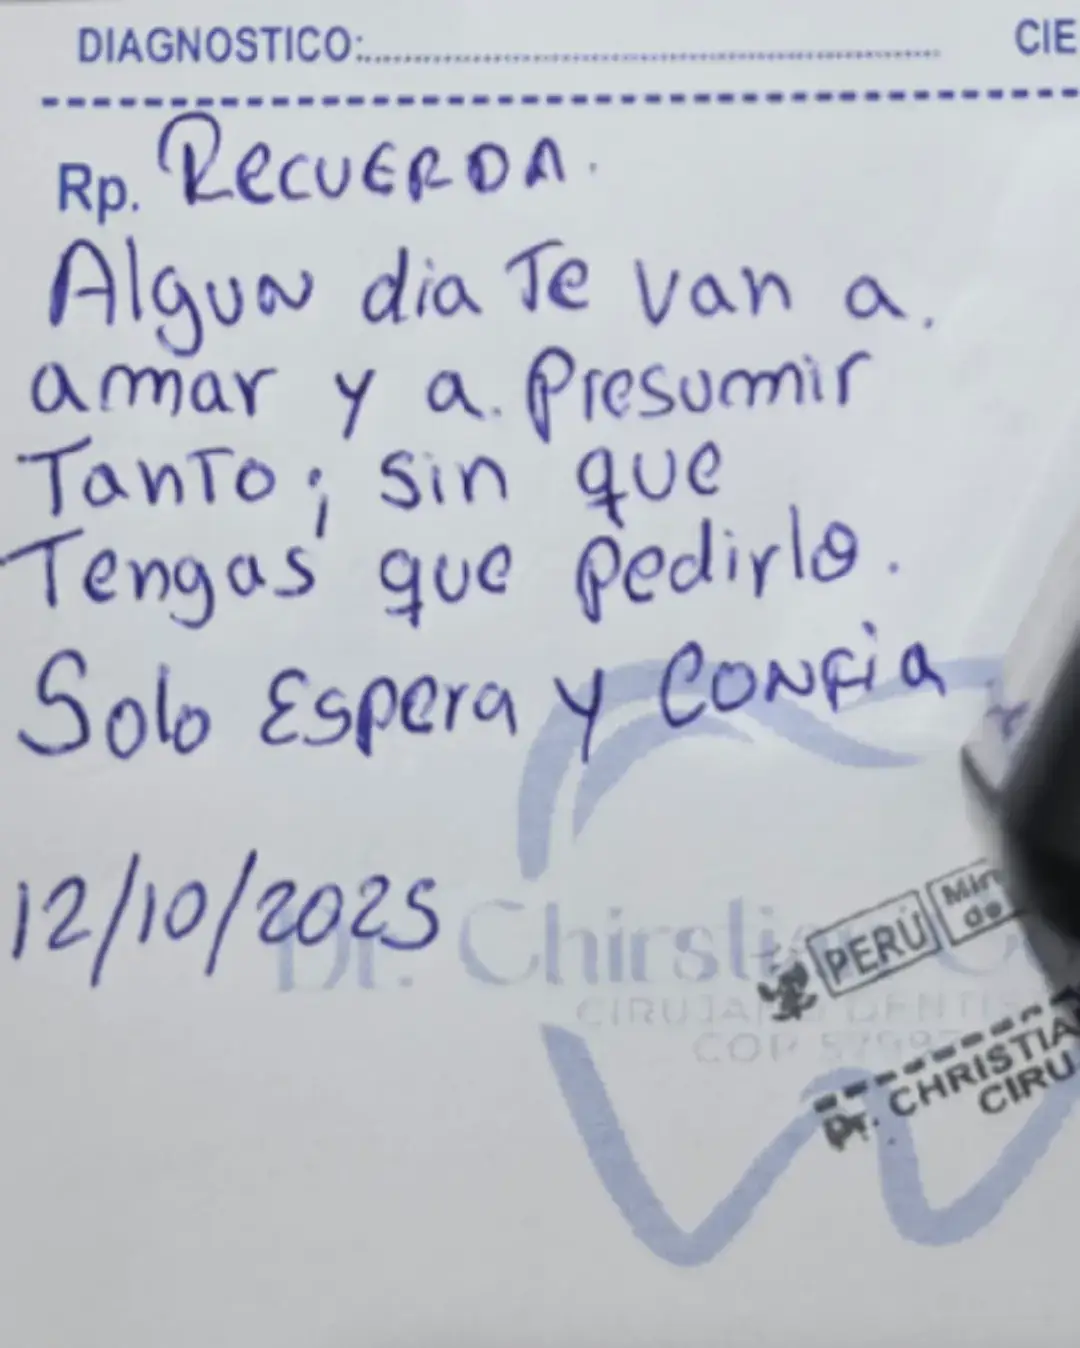 DIAGNOSTICO:
CIE
Rp. RecuERDA.
Algun dia Te van a.
amar y a. Presumir
TanTo; sin que
Tengas que pedirlo.
Solo Espera y CONFia
12/10/2025
Dr. Chirstia
PERÚ Min
de
CIRUJA DENTIS
COP
Dr. CHRISTIA
CIRU